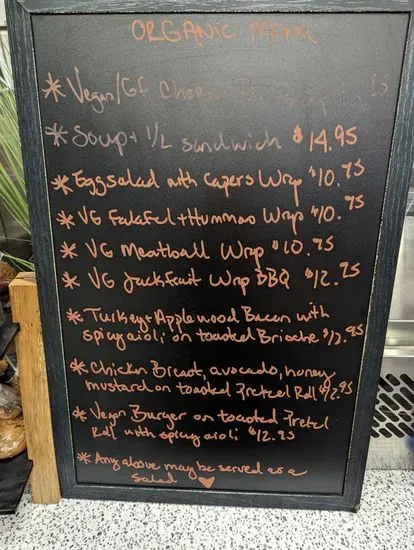 ORGANIC MENU
* Vegan/GF Cheesy
* Soup + 1/2 sandwich $14.95
* Eggsalad with Capers Wrap $10.95
* VG Falafel + Hummas Wrap $10.95
* VG Meatball Wrap $10.95
* VG Jackfruit Wrap BBQ $12.95
* Turkey + Applewood Bacon with
spicy aioli on toasted Brioche $13.95
* Chicken Breast, avocado, honey
mustard on toasted Pretzel Roll $12.95
* Vegan Burger on toasted Pretzel
Roll with spicy aioli $12.95
* Any above may be served as a
salad ♥